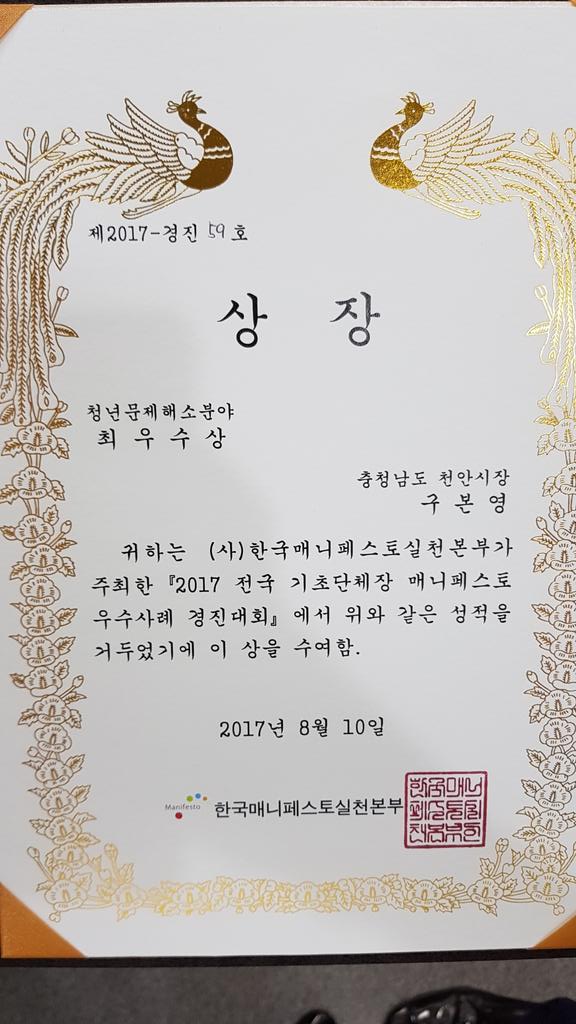 제2017-경진 59호
상 장
청년문제해소분야
최 우 수 상
충청남도 천안시장
구 본 영
귀하는 (사)한국매니페스토실천본부가
주최한 『2017 전국 기초단체장 매니페스토
우수사례 경진대회』에서 위와 같은 성적을
거두었기에 이 상을 수여함.
2017년 8월 10일
Manifesto 한국매니페스토실천본부